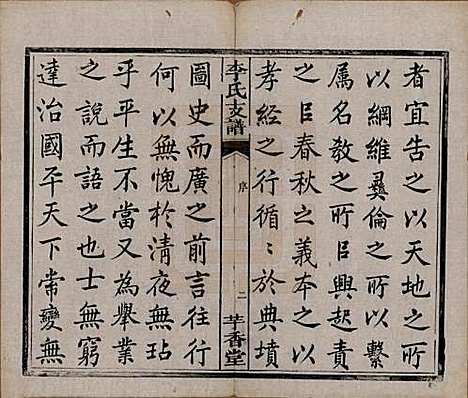 者宜告之以天地之
以綱維彝倫之所以繫
屬名教之所㠯興起責
之㠯春秋之義本之以
孝經之行循﹕於典墳
李氏支譜
序
二
芋香堂
圖史而廣之前言往行
何以無愧於清夜無玷
乎平生不當又為舉業
之說而語之也士無窮
達治國平天下常變無